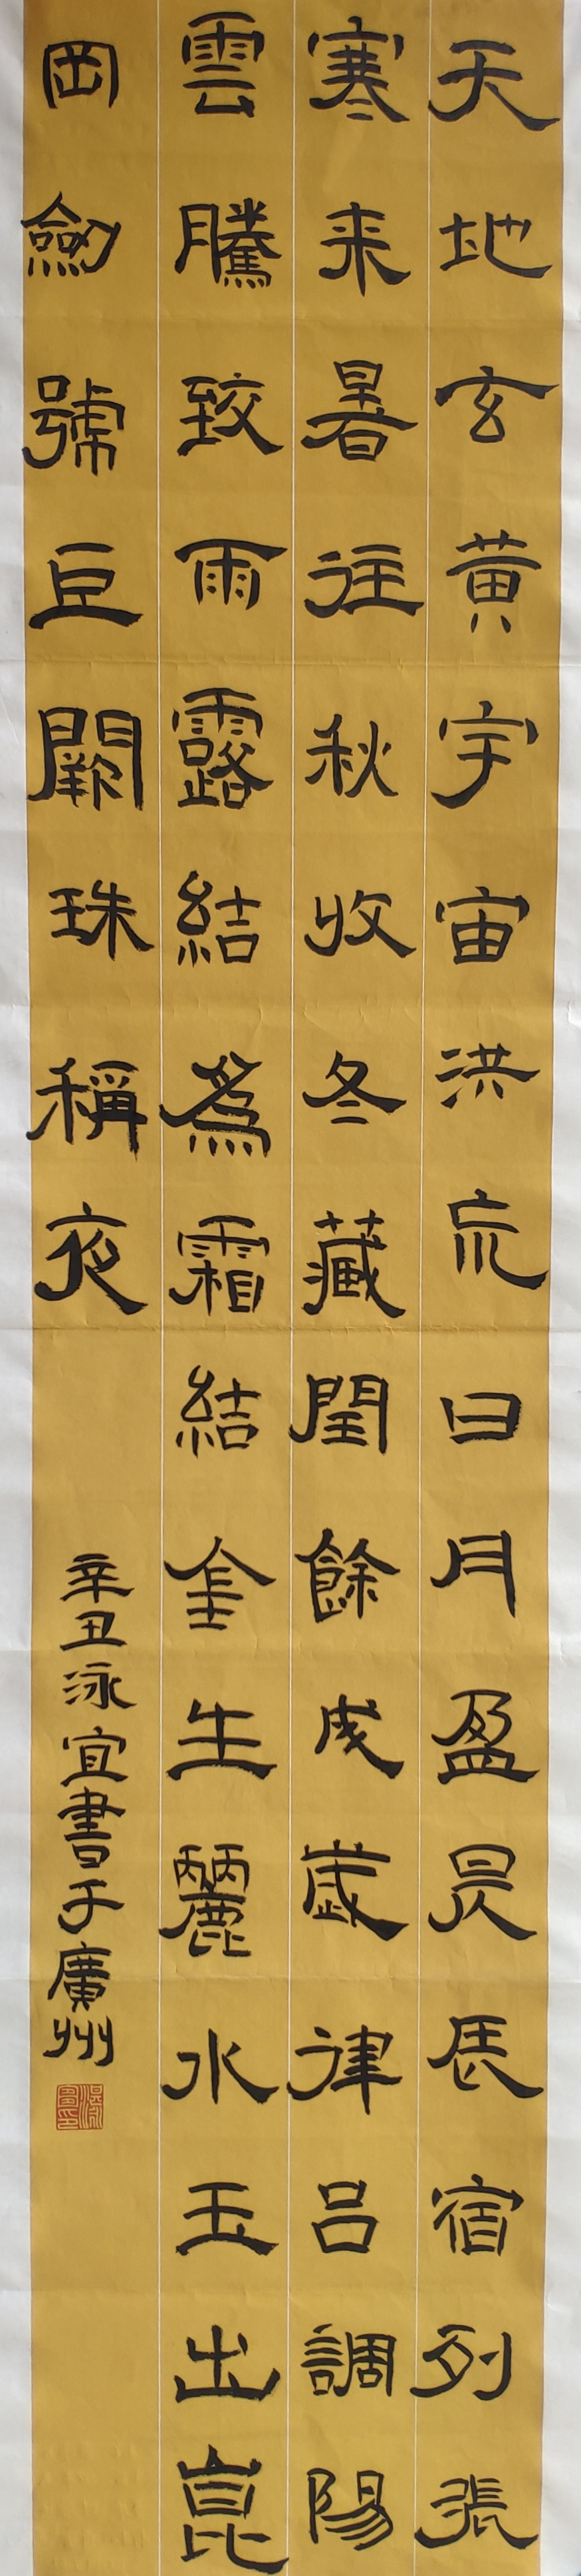 天地玄黃宇宙洪巟日月盈昃辰宿列張
寒来暑往秋收冬藏閏餘成歲律吕調陽
雲騰致雨露結爲霜結金生麗水玉出崑
岡劍號巨闕珠稱夜
辛丑泳宜書于廣州